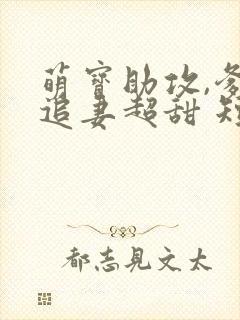 萌寶助攻,
追妻超甜
都志見文太